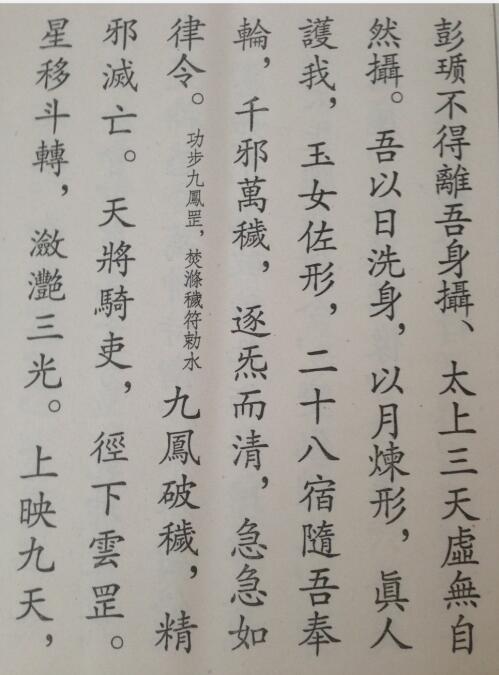 彭瓆不得離吾身攝、太上三天虛無自
然攝。吾以日洗身，以月煉形，眞人
護我，玉女佐形，二十八宿隨吾奉
輪，千邪萬穢，逐炁而清，急急如
律令。功步九鳳罡，焚滌穢符勅水九鳳破穢，精
邪滅亡。天將騎吏，徑下雲罡。
星移斗轉，瀲灧三光。上映九天，